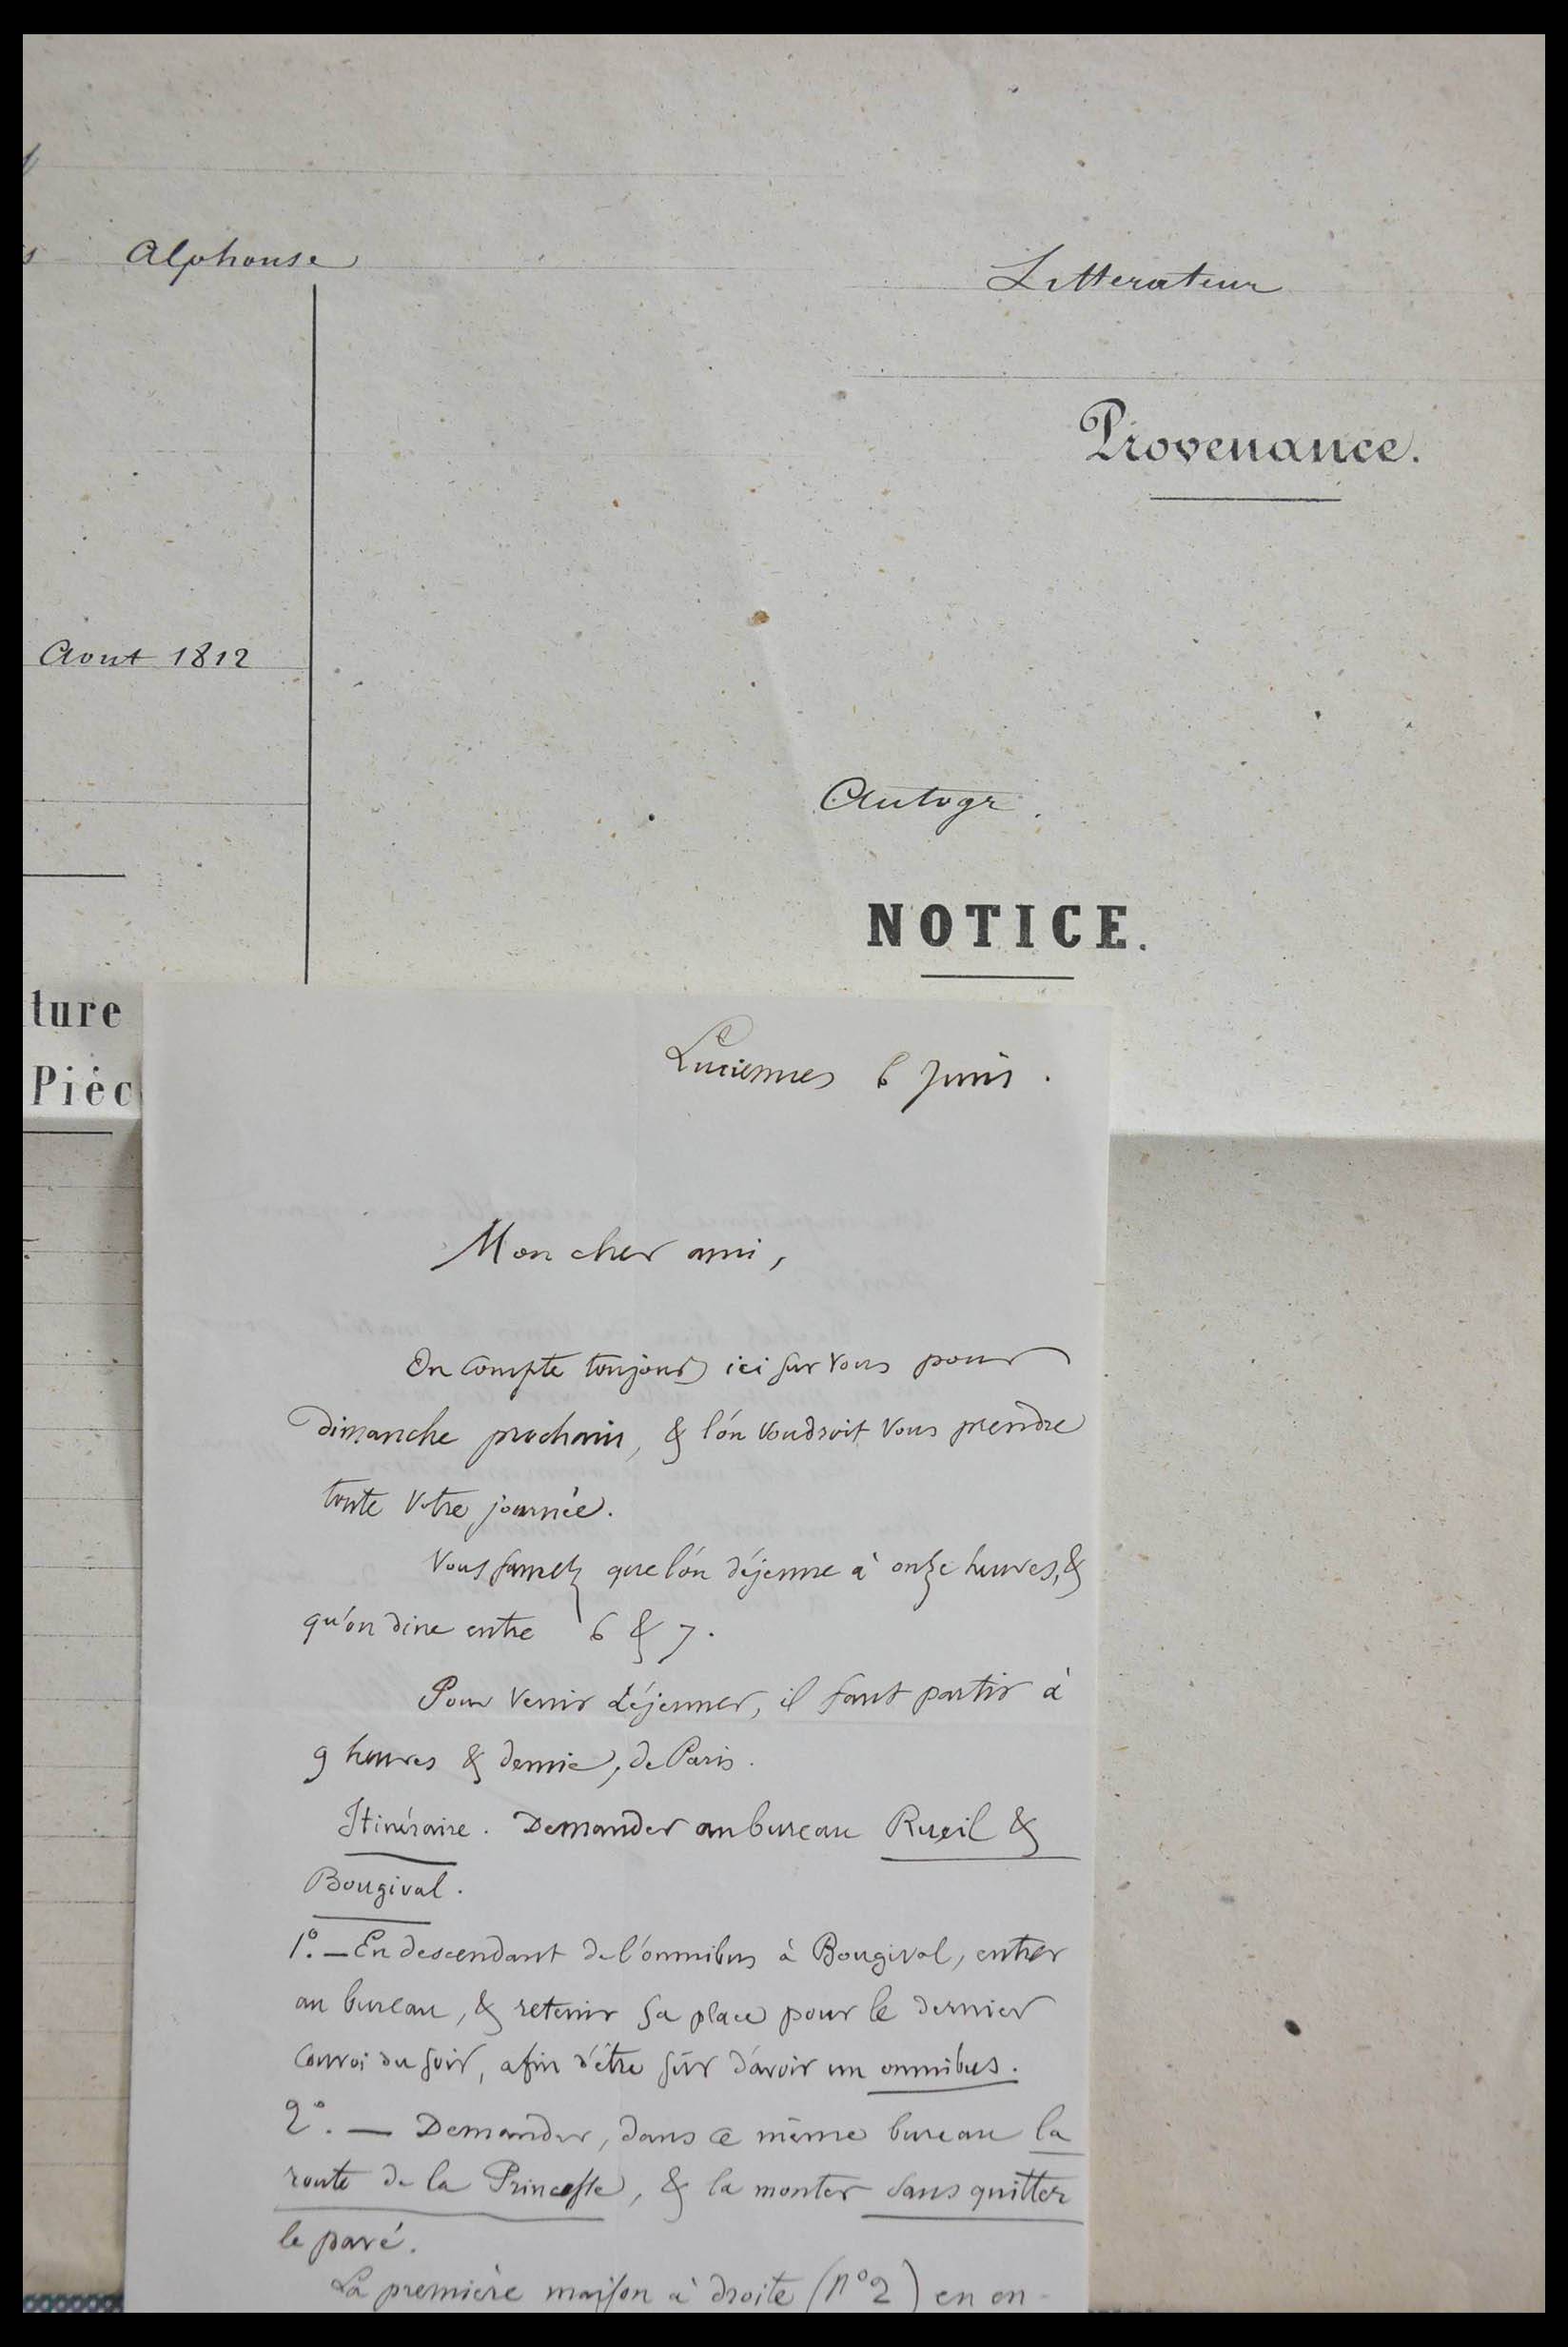 Alphonse
Litterateur
Provenance.
Aout 1812
Autogr.
NOTICE.
ture
Pièc
Luciennes 6 Juin.
Mon cher ami,
On compte toujours ici sur vous pour
dimanche prochain, & l'on voudroit vous prendre
toute votre journée.
Vous savez que l'on déjeune à onze heures, &
qu'on dine entre 6 & 7.
Pour venir déjeuner, il faut partir à
9 heures & demie, de Paris.
Itinéraire. Demander au bureau Rueil &
Bougival.
1º. — En descendant de l'omnibus à Bougival, entrer
au bureau, & retenir sa place pour le dernier
convoi du soir, afin d'être sûr d'avoir un omnibus.
2º. — Demander, dans ce même bureau la
route de la Princesse, & la monter sans quitter
le pavé.
La première maison à droite (nº 2) en en-